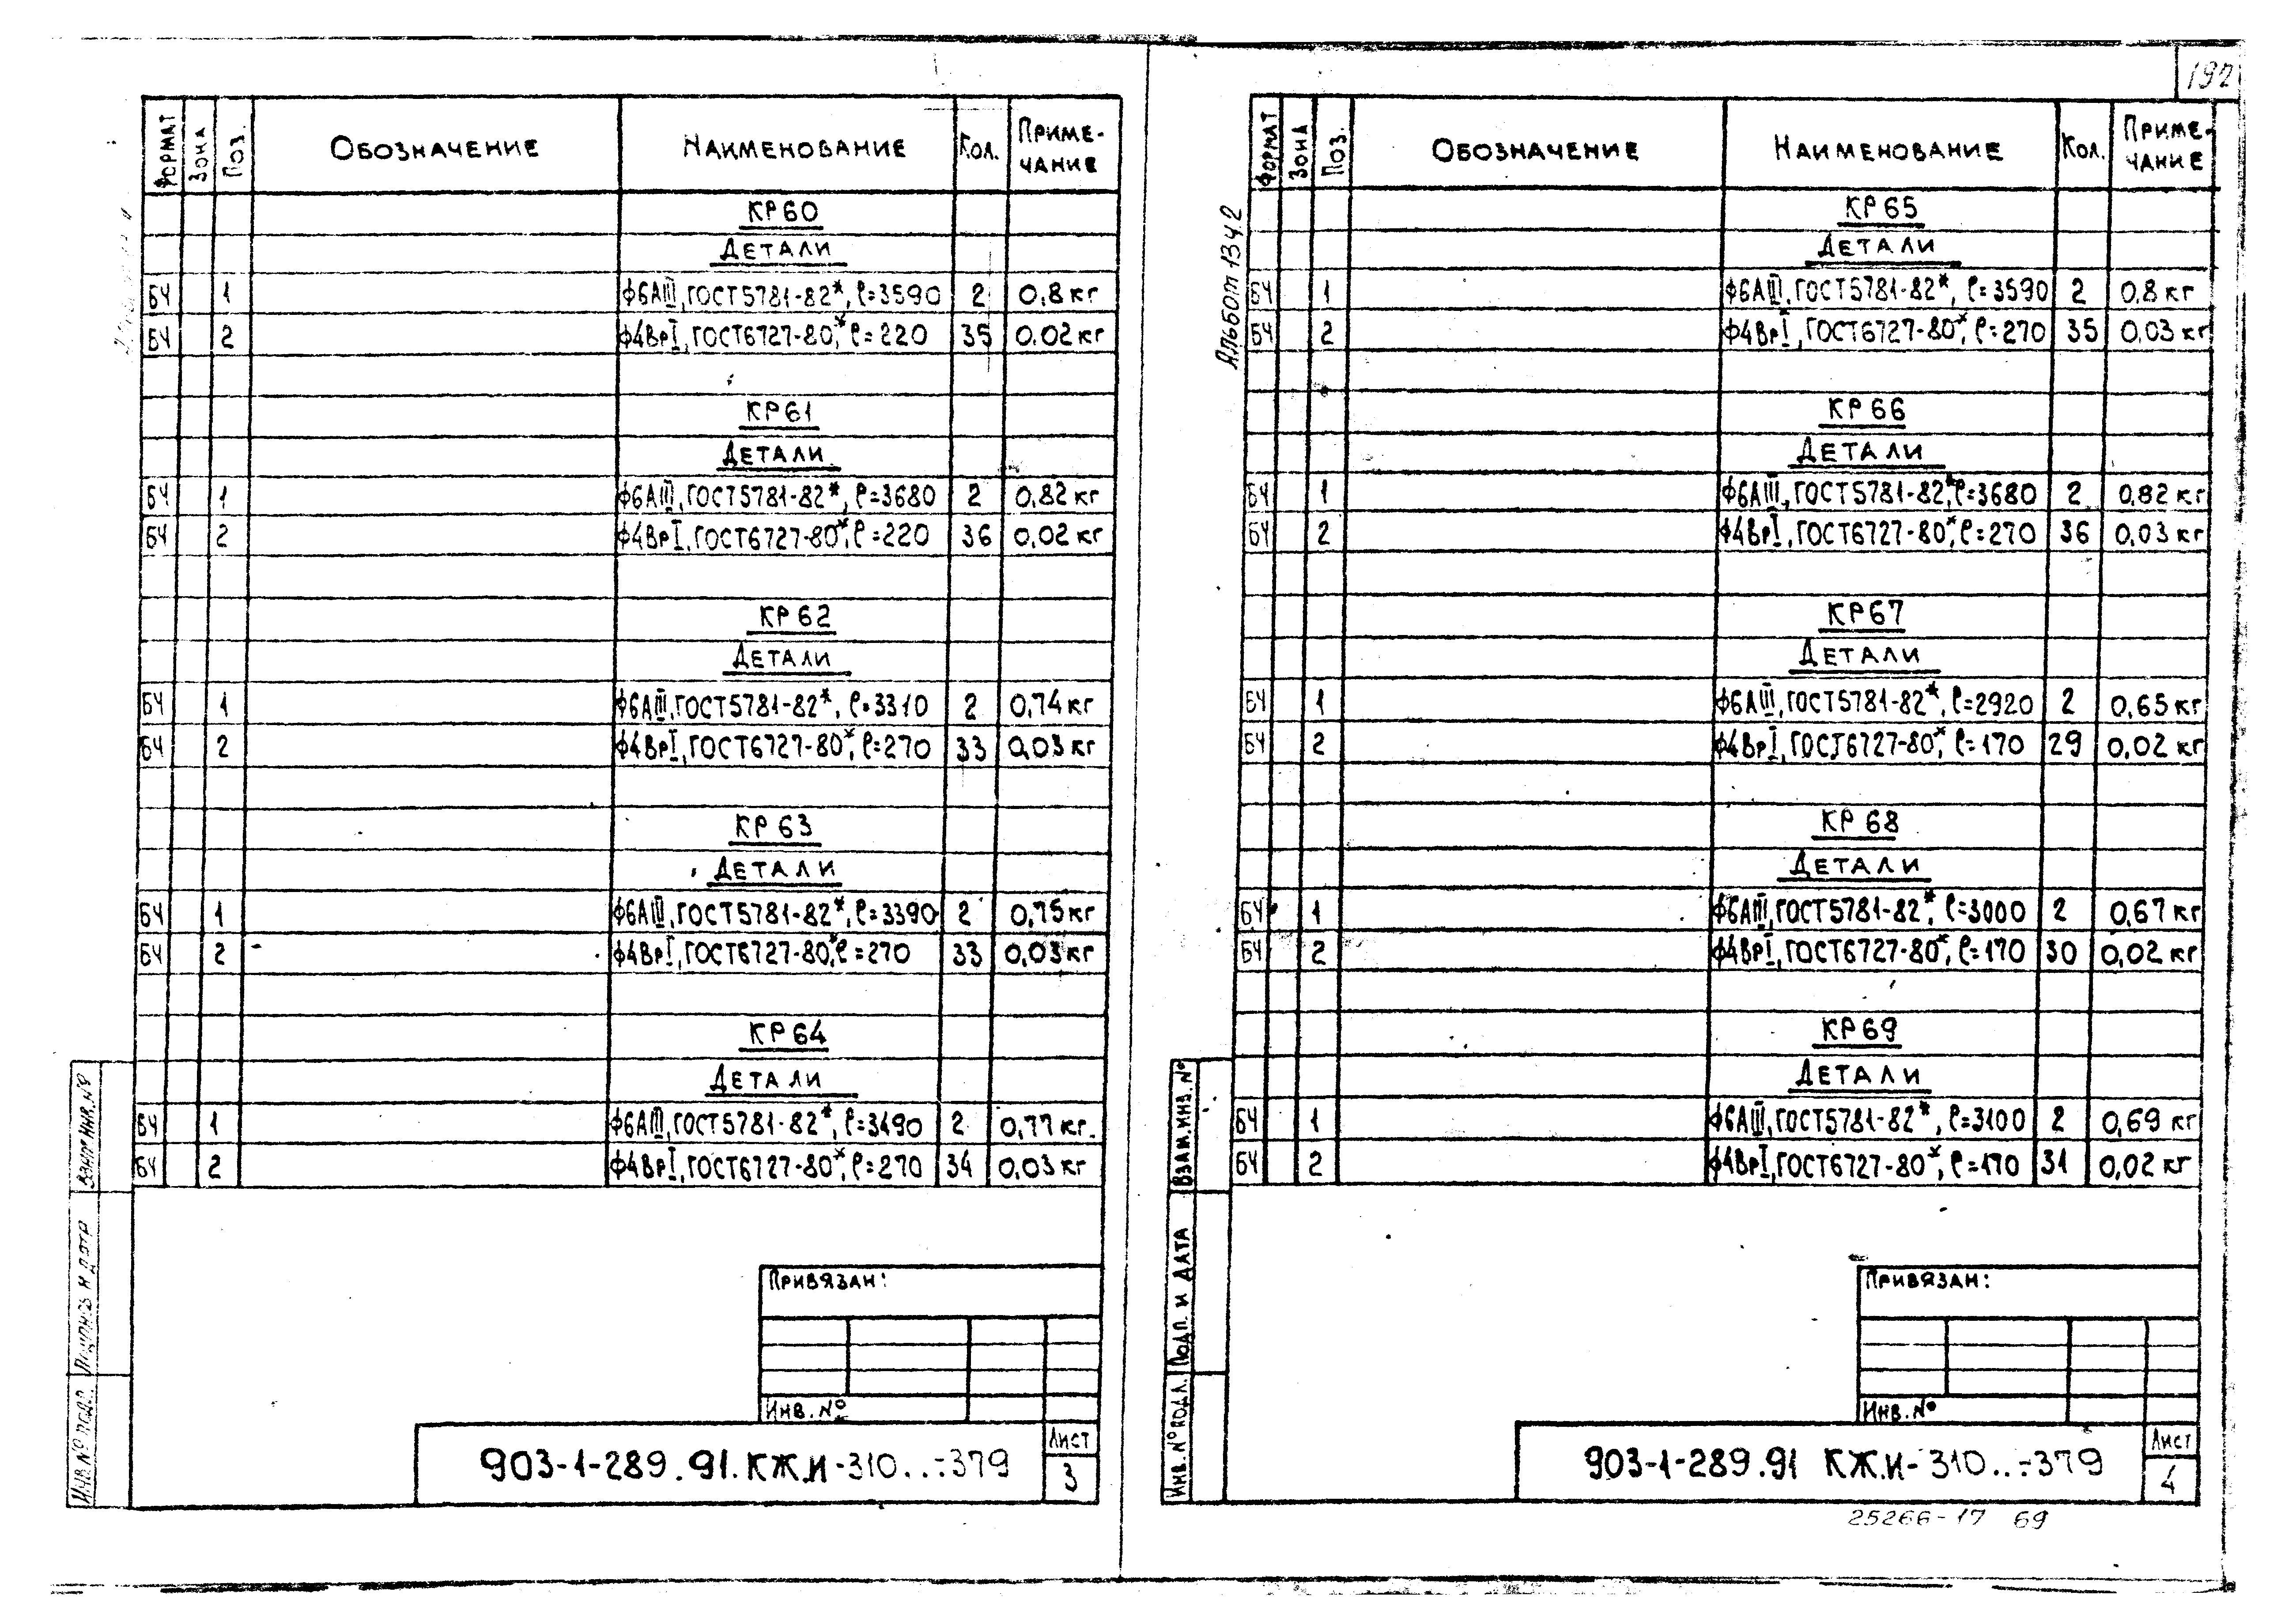 192
ФОРМАТ ЗОНА ПОЗ. ОБОЗНАЧЕНИЕ НАИМЕНОВАНИЕ КОЛ. ПРИМЕ-
ЧАНИЕ
КР60
ДЕТАЛИ
БЧ 1 ф6АIII, ГОСТ5781-82*, ℓ=3590 2 0,8 кг
БЧ 2 ф4ВрI, ГОСТ6727-80*, ℓ=220 35 0,02 кг
КР61
ДЕТАЛИ
БЧ 1 ф6АIII, ГОСТ5781-82*, ℓ=3680 2 0,82 кг
БЧ 2 ф4ВрI, ГОСТ6727-80*, ℓ=220 36 0,02 кг
КР62
ДЕТАЛИ
БЧ 1 ф6АIII, ГОСТ5781-82*, ℓ=3310 2 0,74 кг
БЧ 2 ф4ВрI, ГОСТ6727-80*, ℓ=270 33 0,03 кг
КР63
ДЕТАЛИ
БЧ 1 ф6АIII, ГОСТ5781-82*, ℓ=3390 2 0,75 кг
БЧ 2 ф4ВрI, ГОСТ6727-80*, ℓ=270 33 0,03 кг
КР64
ДЕТАЛИ
БЧ 1 ф6АIII, ГОСТ5781-82*, ℓ=3490 2 0,77 кг.
БЧ 2 ф4ВрI, ГОСТ6727-80*, ℓ=270 34 0,03 кг
ВЗАМ ИНВ. №
ПОДПИСЬ И ДАТА
ИНВ. № ПОД.
ПРИВЯЗАН:
ИНВ. №
903-1-289.91. КЖ.И-310..÷379
ЛИСТ
3
Альбом 13ч.2
ФОРМАТ ЗОНА ПОЗ. ОБОЗНАЧЕНИЕ НАИМЕНОВАНИЕ КОЛ. ПРИМЕ-
ЧАНИЕ
КР65
ДЕТАЛИ
БЧ 1 ф6АIII, ГОСТ5781-82*, ℓ=3590 2 0,8 кг
БЧ 2 ф4ВрI, ГОСТ6727-80*, ℓ=270 35 0,03 кг
КР66
ДЕТАЛИ
БЧ 1 ф6АIII, ГОСТ5781-82*, ℓ=3680 2 0,82 кг
БЧ 2 ф4ВрI, ГОСТ6727-80*, ℓ=270 36 0,03 кг
КР67
ДЕТАЛИ
БЧ 1 ф6АIII, ГОСТ5781-82*, ℓ=2920 2 0,65 кг
БЧ 2 ф4ВрI, ГОСТ6727-80*, ℓ=170 29 0,02 кг
КР68
ДЕТАЛИ
БЧ 1 ф6АIII, ГОСТ5781-82*, ℓ=3000 2 0,67 кг
БЧ 2 ф4ВрI, ГОСТ6727-80*, ℓ=170 30 0,02 кг
КР69
ДЕТАЛИ
БЧ 1 ф6АIII, ГОСТ5781-82*, ℓ=3100 2 0,69 кг
БЧ 2 ф4ВрI, ГОСТ6727-80*, ℓ=170 31 0,02 кг
ВЗАМ. ИНВ. №
ПОДП. И ДАТА
ИНВ. № ПОДЛ.
ПРИВЯЗАН:
ИНВ. №
903-1-289.91 КЖ.И-310..÷379
ЛИСТ
4
25266-17 69